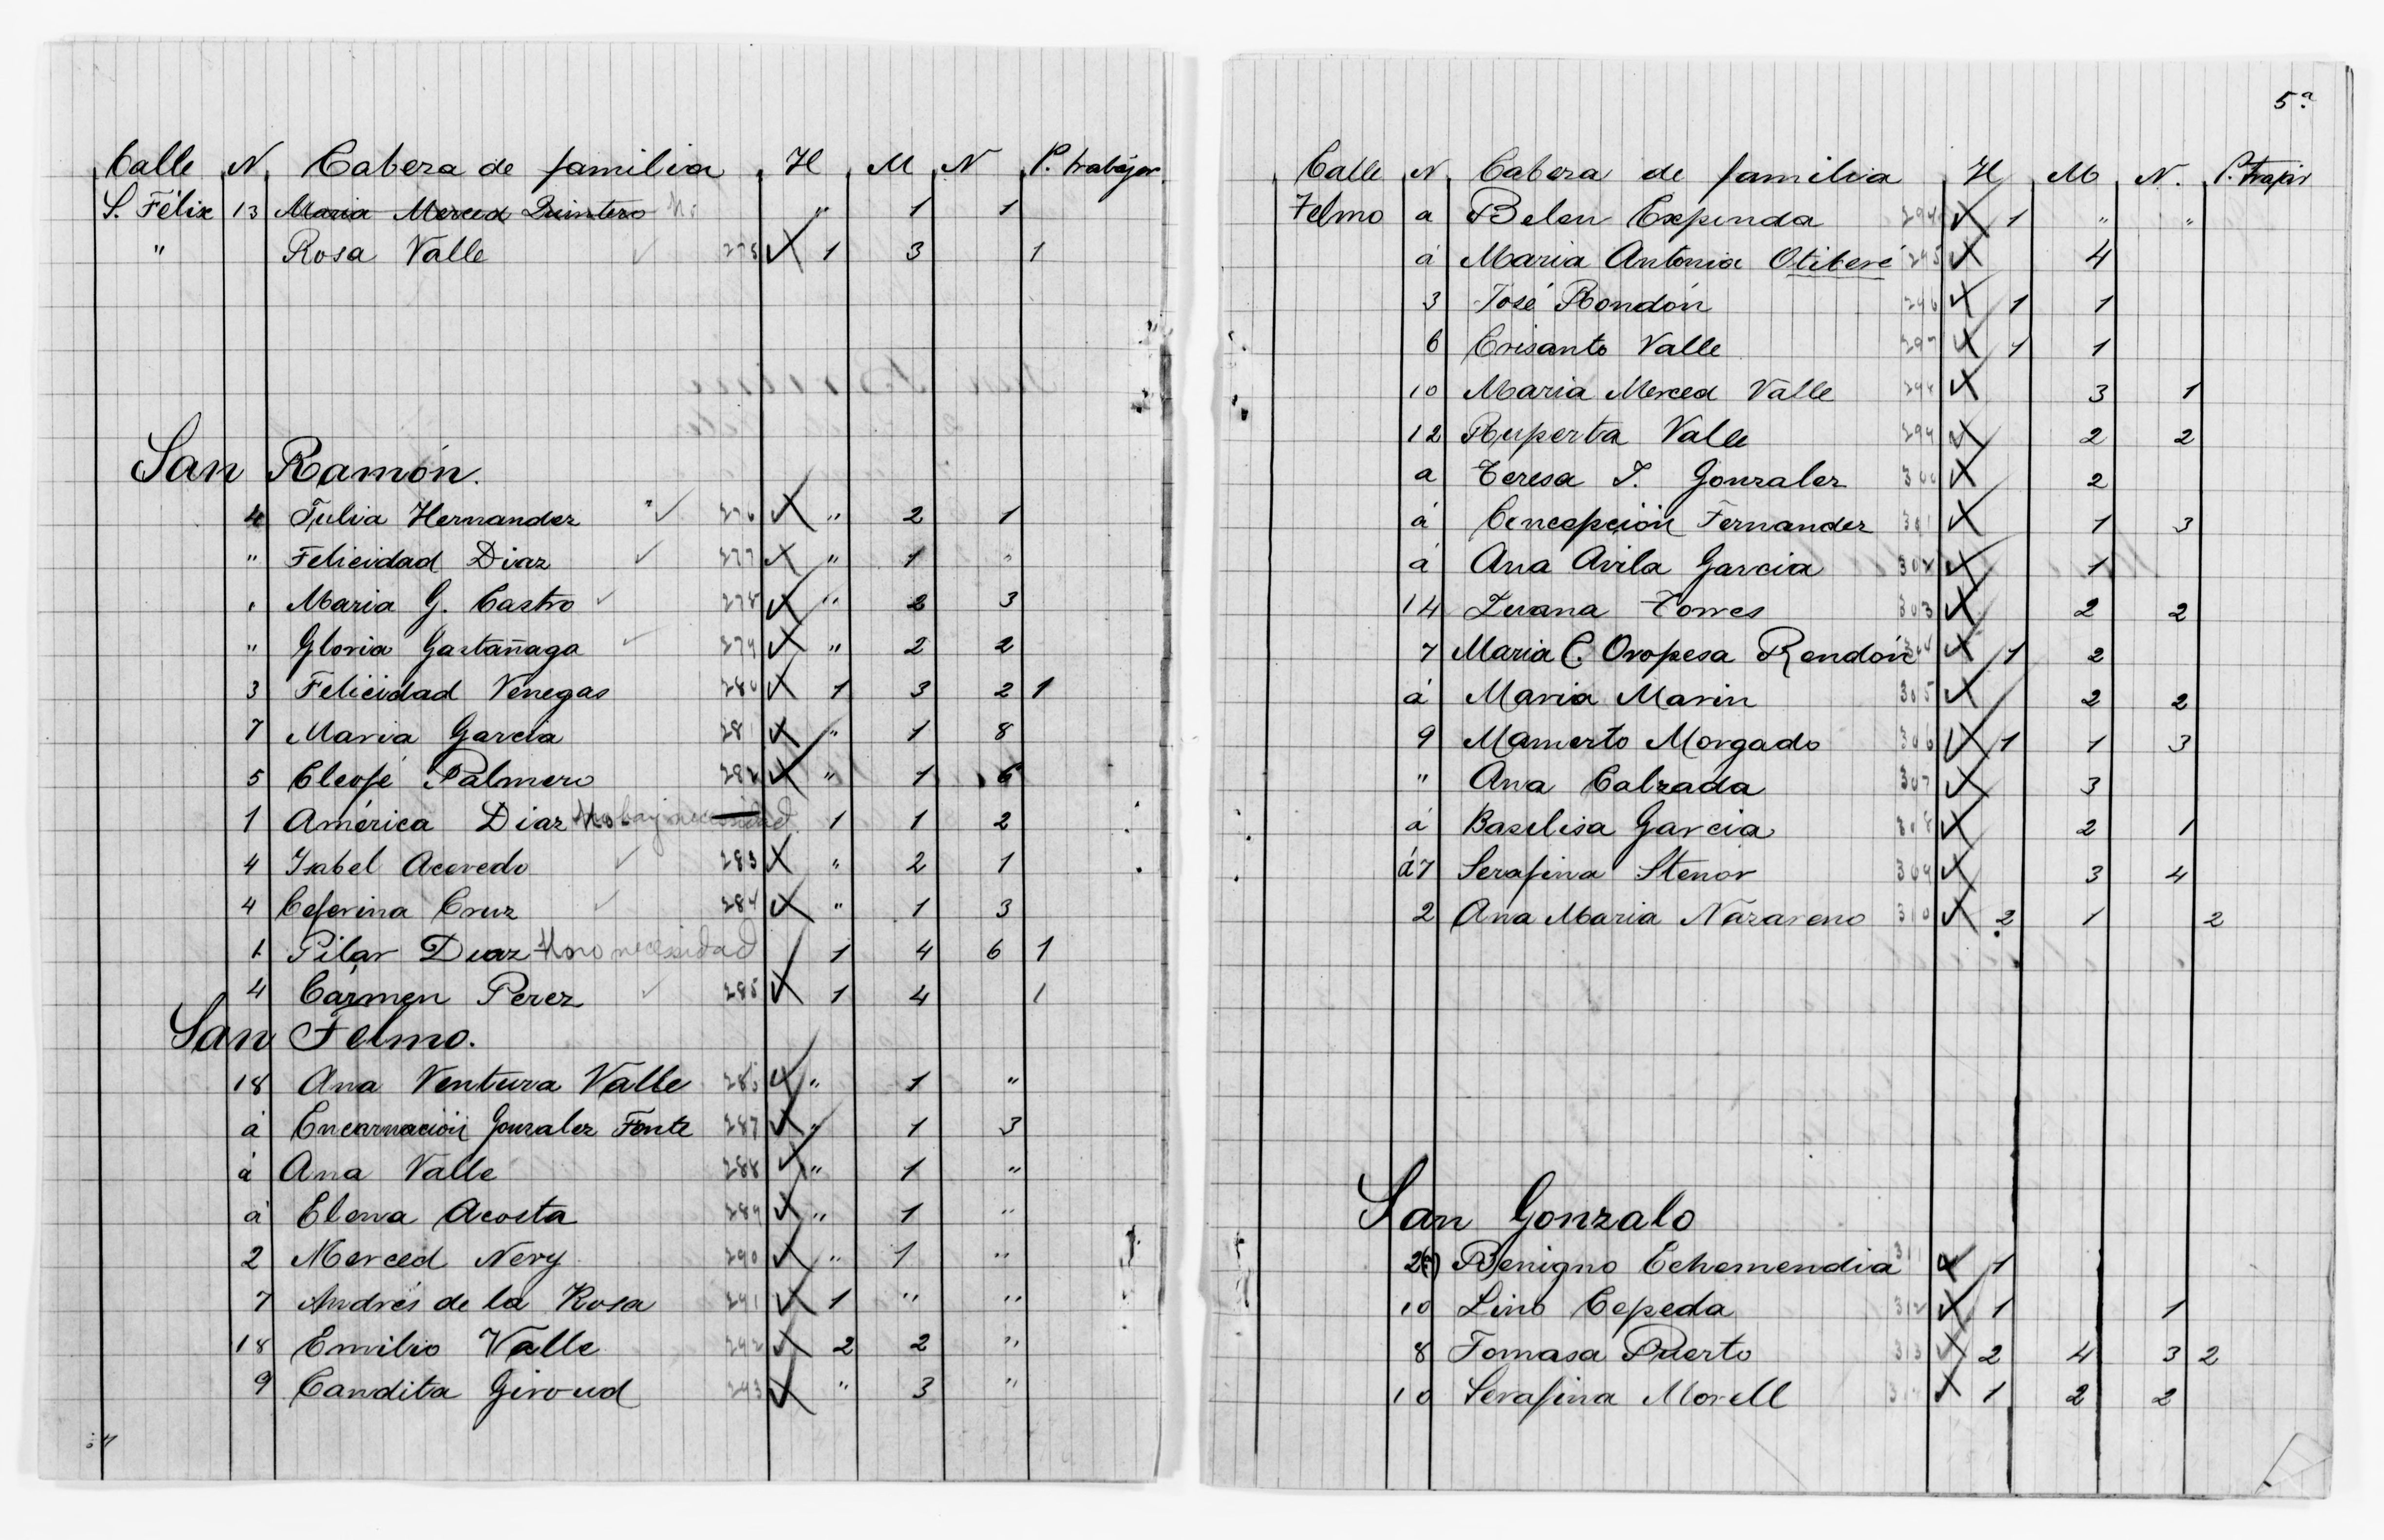 Calle N. Cabeza de familia H M N P. trabajar
S. Félix 13 Maria Merced Quintero No " 1 1
" Rosa Valle ✓ 275 1 3 1
San Ramón.
4 Julia Hernandez ✓ 276 " 2 1
" Felicidad Diaz ✓ 277 " 1 "
" Maria G. Castro ✓ 278 " 2 3
" Gloria Gastañaga ✓ 279 " 2 2
3 Felicidad Venegas 280 1 3 2 1
7 Maria Garcia 281 " 1 8
5 Cleofé Palmero 282 " 1 6
1 América Diaz No hay necesidad 1 1 2
4 Isabel Acevedo ✓ 283 " 2 1
4 Ceferina Cruz ✓ 284 " 1 3
1 Pilar Diaz necessidad 1 4 6 1
4 Cármen Perez ✓ 285 1 4 1
San Telmo.
18 Ana Ventura Valle 286 " 1 "
á Encarnación Gonzalez Fonte 287 " 1 3
á Ana Valle 288 " 1 "
á Elena Acosta 289 " 1 "
2 Merced Nery 290 " 1 "
7 Andrés de la Rosa 291 1 " "
18 Emilio Valle 292 2 2 "
9 Candita Giroud 293 " 3 "
5ª
Calle N. Cabeza de familia H M N. P. Trajar
Telmo a Belen Expinda 294 1 " "
á Maria Antonia Otiberé 295 4
3 José Rondón 296 1 1
6 Crisanto Valle 297 1 1
10 Maria Merced Valle 298 3 1
12 Ruperta Valle 299 2 2
a Teresa J. Gonzalez 300 2
á Concepción Fernandez 301 1 3
á Ana Avila Garcia 302 1
14 Juana Torres 303 2 2
7 Maria C. Oropesa Rendón 304 1 2
á Maria Marin 305 2 2
9 Mamerto Morgado 306 1 1 3
" Ana Calzada 307 3
á Baselisa Garcia 308 2 1
á7 Serafina Stenor 309 3 4
2 Ana Maria Nazareno 310 2 1 2
San Gonzalo
2(a) Benigno Echemendia 311 1
10 Lino Cepeda 312 1 1
8 Tomasa Puerto 313 2 4 3 2
10 Serafina Morell 314 1 2 2